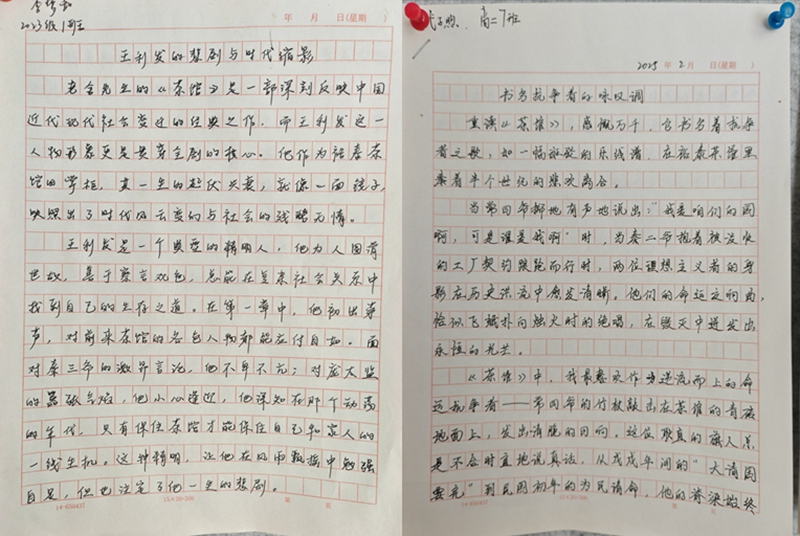 2023级1班
年 月 日(星期 )
王利发的悲剧与时代缩影
老舍先生的《茶馆》是一部深刻反映中国
近代现代社会变迁的经典之作,而王利发这一
人物形象更是贯穿全剧的核心。他作为裕泰茶
馆的掌柜,其一生的起伏兴衰,就像一面镜子,
映照出了时代风云变幻与社会的残酷无情。
王利发是一个典型的精明人,他为人圆滑
世故,善于察言观色,总能在复杂社会关系中
找到自己的生存之道。在第一幕中,他初出茅
声,对前来茶馆的各色人物都能应付自如。面
对秦二爷的激昂言论,他不卑不亢;对庞太监
的嚣张气焰,他小心逢迎,他深知在那个动荡
的年代,只有保住茶馆才能保住自己和家人的
一线生机。这种精明,让他在风雨飘摇中勉强
自足,但也注定了他一生的悲剧。
14-650437 15×20=300 第 页
高二7班
2025年2月 日(星期 )
书写抗争者的咏叹调
重读《茶馆》,感慨万千,它书写着抗争
者之歌,如一幅斑驳的乐线谱,在裕泰茶馆里
奏着半个世纪的悲欢离合。
当常四爷掷地有声地说出:"我爱咱们的国
啊,可是谁爱我啊"时,当秦二爷抱着被没收
的工厂契约踉跄而行时,两位理想主义者的身
影在历史洪流中愈发清晰。他们的命运交响曲,
恰似飞蛾扑向烛火时的绝唱,在毁灭中迸发出
永恒的光芒。
《茶馆》中,我最喜欢作为逆流而上的命
运抗争者——常四爷的竹杖敲击在茶馆的青砖
地面上,发出清脆的回响。这位耿直的旗人总
是不合时宜地说真话,从戊戌年间的"大清国
要完"到民国初年的为民请命,他的脊梁始终
14-650437 15×20=300 第 页